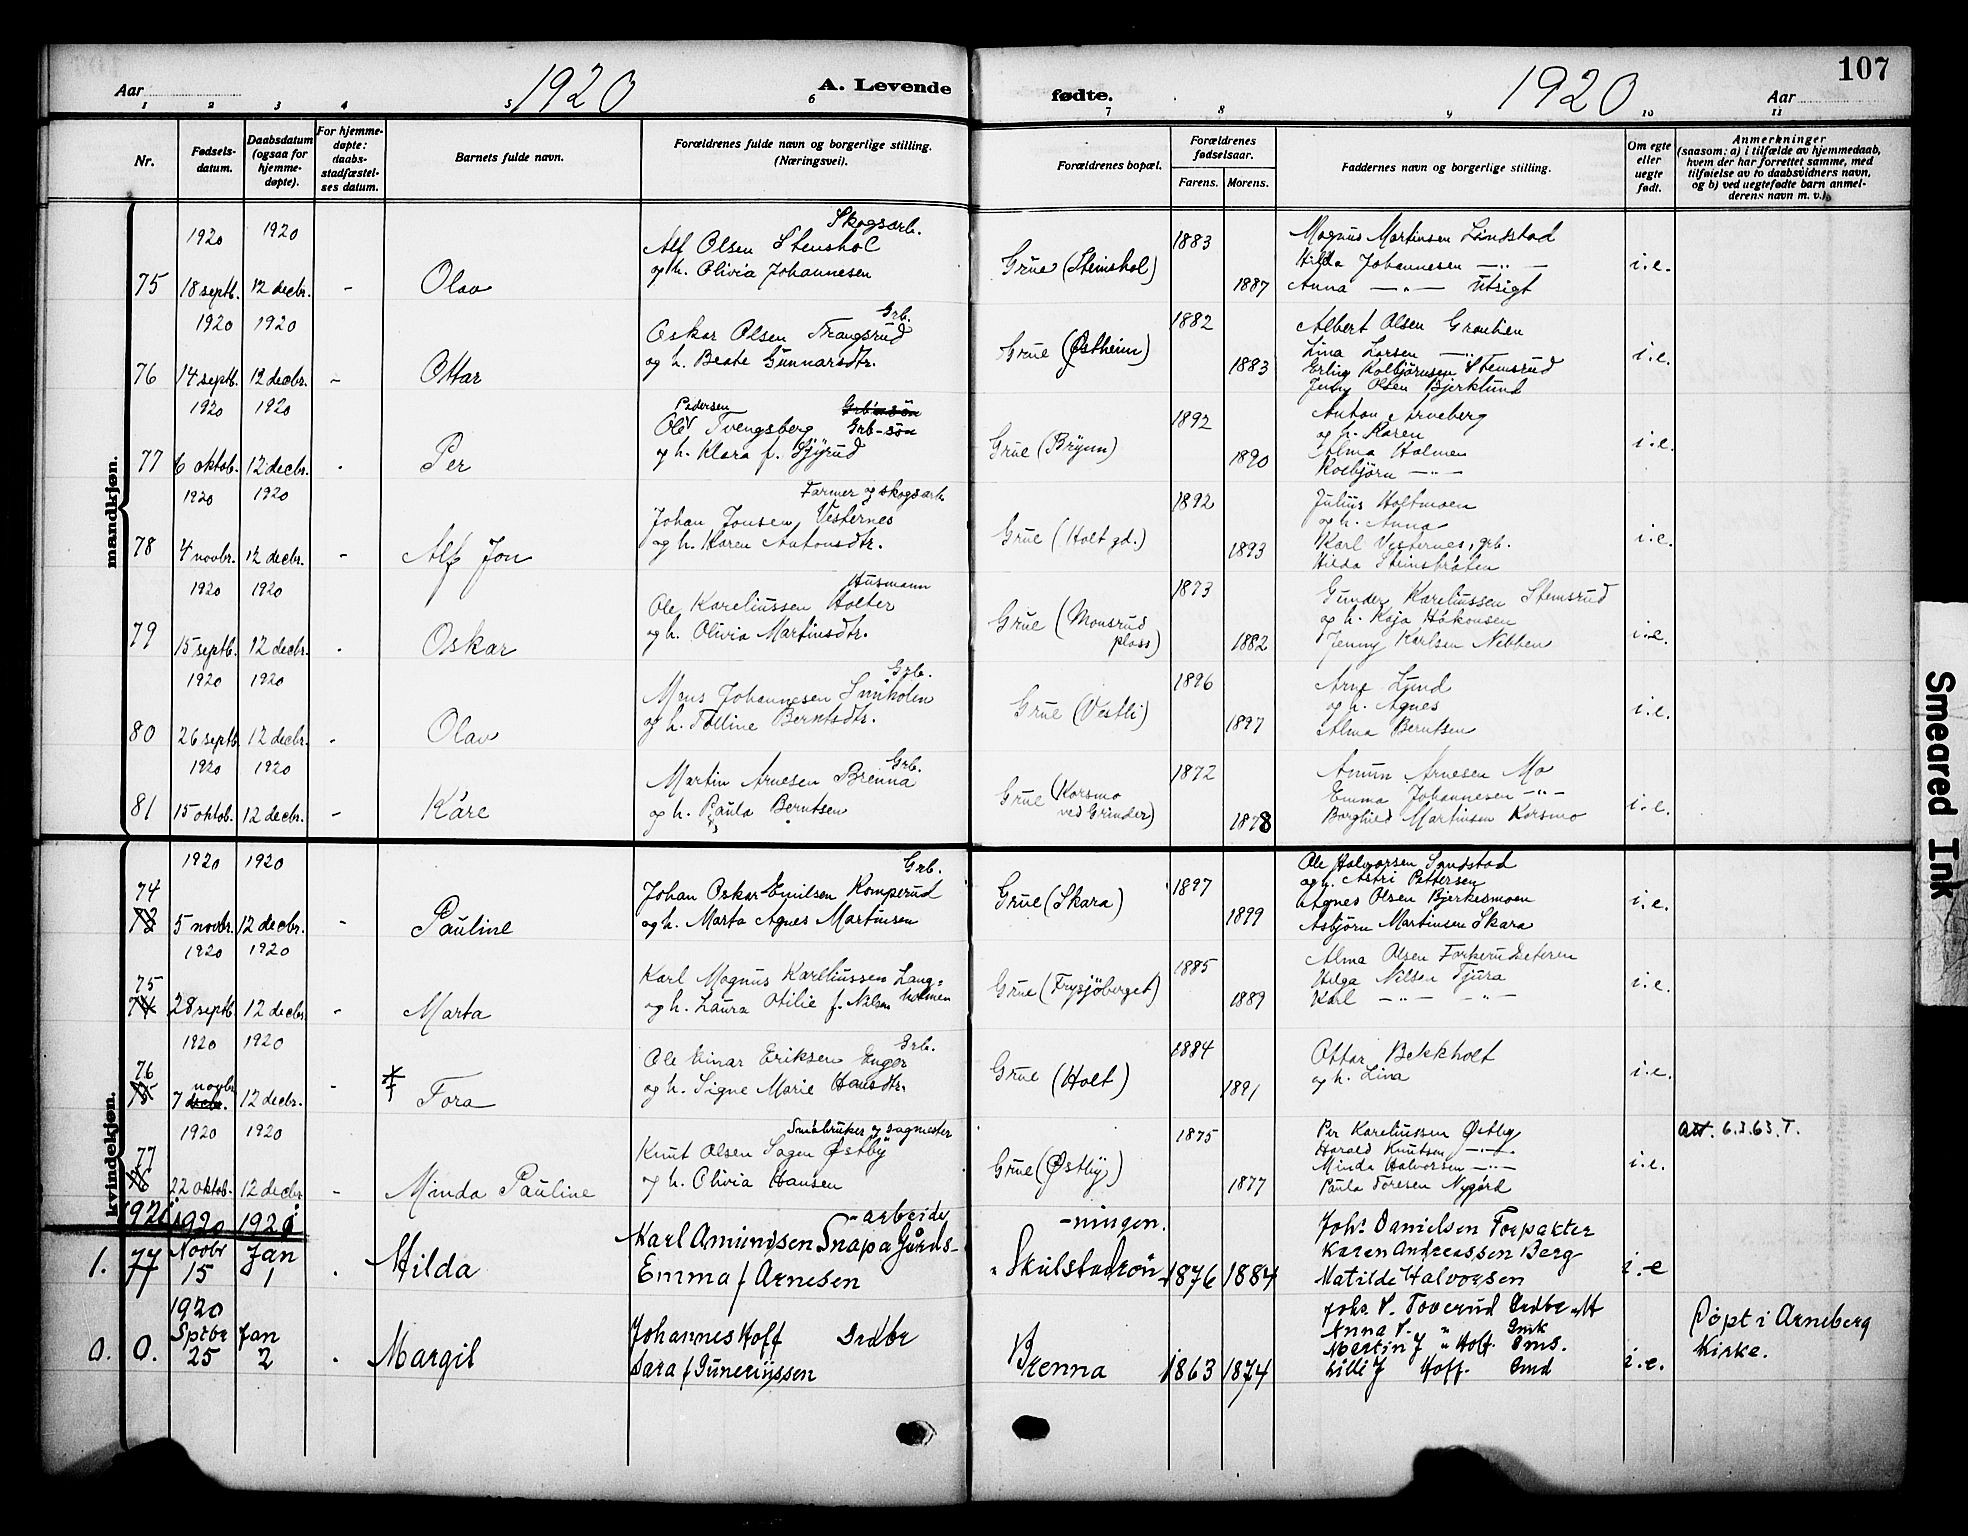 107
Aar 1920 A. Levende
fødte. 1920 Aar
1 2 3 4 5 6 7 8 9 10 11
Nr.
Fødsels-
datum.
Daabsdatum
(ogsaa for
hjemme-
døpte).
For hjemme-
døpte:
daabs-
stadfæstel-
ses datum.
Barnets fulde navn.
Forældrenes fulde navn og borgerlige stilling.
(Næringsvei).
Forældrenes bopæl.
Forældrenes
fødselsaar.
Farens. Morens.
Faddernes navn og borgerlige stilling.
Om egte
eller
uegte
født.
Anmerkninger
(saasom: a) i tilfælde av hjemmedaab,
hvem der har forrettet samme, med
tilføielse av to daabsvidners navn,
og b) ved uegtefødte barn anmel-
derens navn m. v.).
mandkjøn.
75 1920 18 septb. 1920 12 decbr. - Olav
Skogsarb.
Alf Olsen Stenshol
og h. Olivia Johannesen
Grue (Stenshol) 1883 1887
Magnus Martinsen Lindstad
Hilda Johannesen -"-
Anna -"- Utsigt
i.e.
76 1920 14 septb. 1920 12 decbr. - Ottar
Grb.
Oskar Olsen Trangsrud
og h. Beate Gunnarsdtr.
Grue (Østheim) 1882 1883
Albert Olsen
Lina Larsen -"-
Erling Kolbjørnsen Stemsrud
Jenny Olsen Bjerklund
i.e.
77 1920 6 oktob. 1920 12 decbr. - Per
Pedersen Grb.
Ole Tvengsberg Grb-søn
og h. Klara f. Gjyrud
Grue (Brynn) 1892 1890
Anton Arneberg
og h. Karen
Alma Holmen
Kolbjørn -"-
i.e.
78 1920 4 novbr. 1920 12 decbr. - Alf Jon
Farmer og skogsarb.
Johan Jonsen Vesternes
og h. Karen Antonsdtr.
Grue (Holt gd.) 1892 1893
Julius Holtmoen
og h. Anna
Karl Vesternes, grb.
Hilda Stensbråten
i.e.
79 1920 15 septb. 1920 12 decbr. - Oskar
Husmann
Ole Kareliussen Holter
og h. Olivia Martinsdtr.
Grue (Monsrud
plass) 1873 1882
Gunder Kareliussen Stemsrud
og h. Kaja Håkonsen
Jenny Karlsen Nebben
i.e.
80 1920 26 septb. 1920 12 decbr. - Olav
Grb.
Mons Johannesen
og h. Talline Berntsdtr.
Grue (Vestli) 1896 1897
Arne Lund
og h. Agnes
Alma Berntsen
i.e.
81 1920 15 oktob. 1920 12 decbr. - Kåre
Grb.
Martin Arnesen Brenna
og h. Paula Berntsen
Grue (Korsmo
ved Grinder) 1872 1878
Amun Arnesen Mo
Emma Johannesen -"-
Borghild Martinsen Korsmo
i.e.
kvindekjøn.
74 73 1920 5 novbr. 1920 12 decbr. - Pauline
Grb.
Johan Oskar Emilsen Komperud
og h. Marta Agnes Martinsen
Grue (Skara) 1897 1899
Ole Halvorsen Sandstad
og h. Astri Pettersen
Agnes Olsen Bjerkesmoen
Asbjørn Martinsen Skara
i.e.
75 74 1920 28 septb. 1920 12 decbr. - Marta
Karl Magnus Kareliussen Lang-
og h. Laura Otilie f. Nilsen holmen
Grue (Frysjøberget) 1885 1889
Alma Olsen
Helga Nilsen Tjura
Karl -"- -"-
i.e.
76 75 1920 7 novbr. decbr. 1920 12 decbr. - Tora
Grb.
Ole Einar Eriksen Enger
og h. Signe Marie Hansdtr.
Grue (Holt) 1884 1891
Ottar Bekkholt
og h. Lina
i.e.
77 76 1920 22 oktob. 1920 12 decbr. - Minda Pauline
Småbruker og sagmester
Knut Olsen Sagen Østby
og h. Olivia Hansen
Grue (Østby) 1875 1877
Per Kareliussen Østby
Harald Knutsen -"-
Minda Halvorsen -"-
Paula Toresen Nygård
i.e.
Att. 6.3.63. T.
1921
1. 77 1920 Novbr 15 1921 Jan 1 - Hilda
-arbeider
Karl Amundsen Snapa Gårds-
Emma f Arnesen
-ningen.
Skulstadrøn- 1876 1884
Johs Danielsen Forpakter
Karen Andreassen Berg
Matilde Halvorsen
i.e
0. 0. 1920 Sptbr 25 Jan 2 - Margit
Johannes Hoff Grdbr
Sara f Guneriussen
Brenna 1863 1874
Johs. T. Toverud Grdbr
Anna T. " Gmk
Martin J " Hoff. Gms.
Lilli J Hoff. Gmd
i.e.
Døpt i Arneberg
Kirke.
Smeared Ink